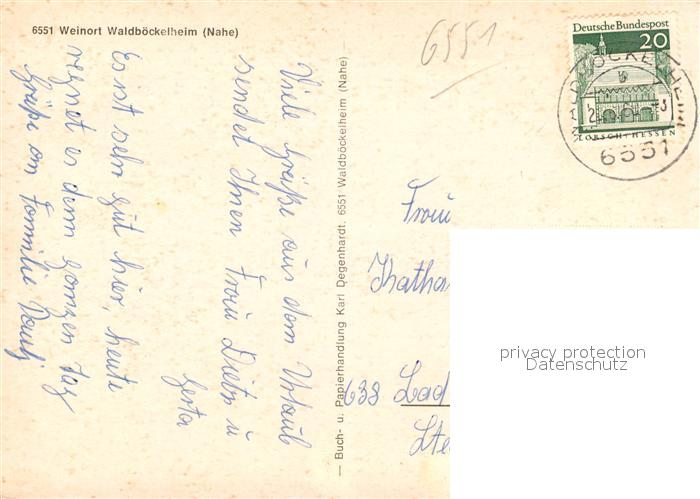 6551 Weinort Waldböckelheim (Nahe)
Viele Grüße aus dem Urlaub
sendet Ihnen Frau Dietz u
Gerta
Es ist sehr gut hier, heute
regnet es denn ganzen Tag
Grüße an Familie
— Buch- u. Papierhandlung Karl Degenhardt. 6551 Waldböckelheim (Nahe) —
6551
Deutsche Bundespost
20
LORSCH·HESSEN
WALDBÖCKELHEIM
6551
Frau
Katha
638 Lad
privacy protection
Datenschutz